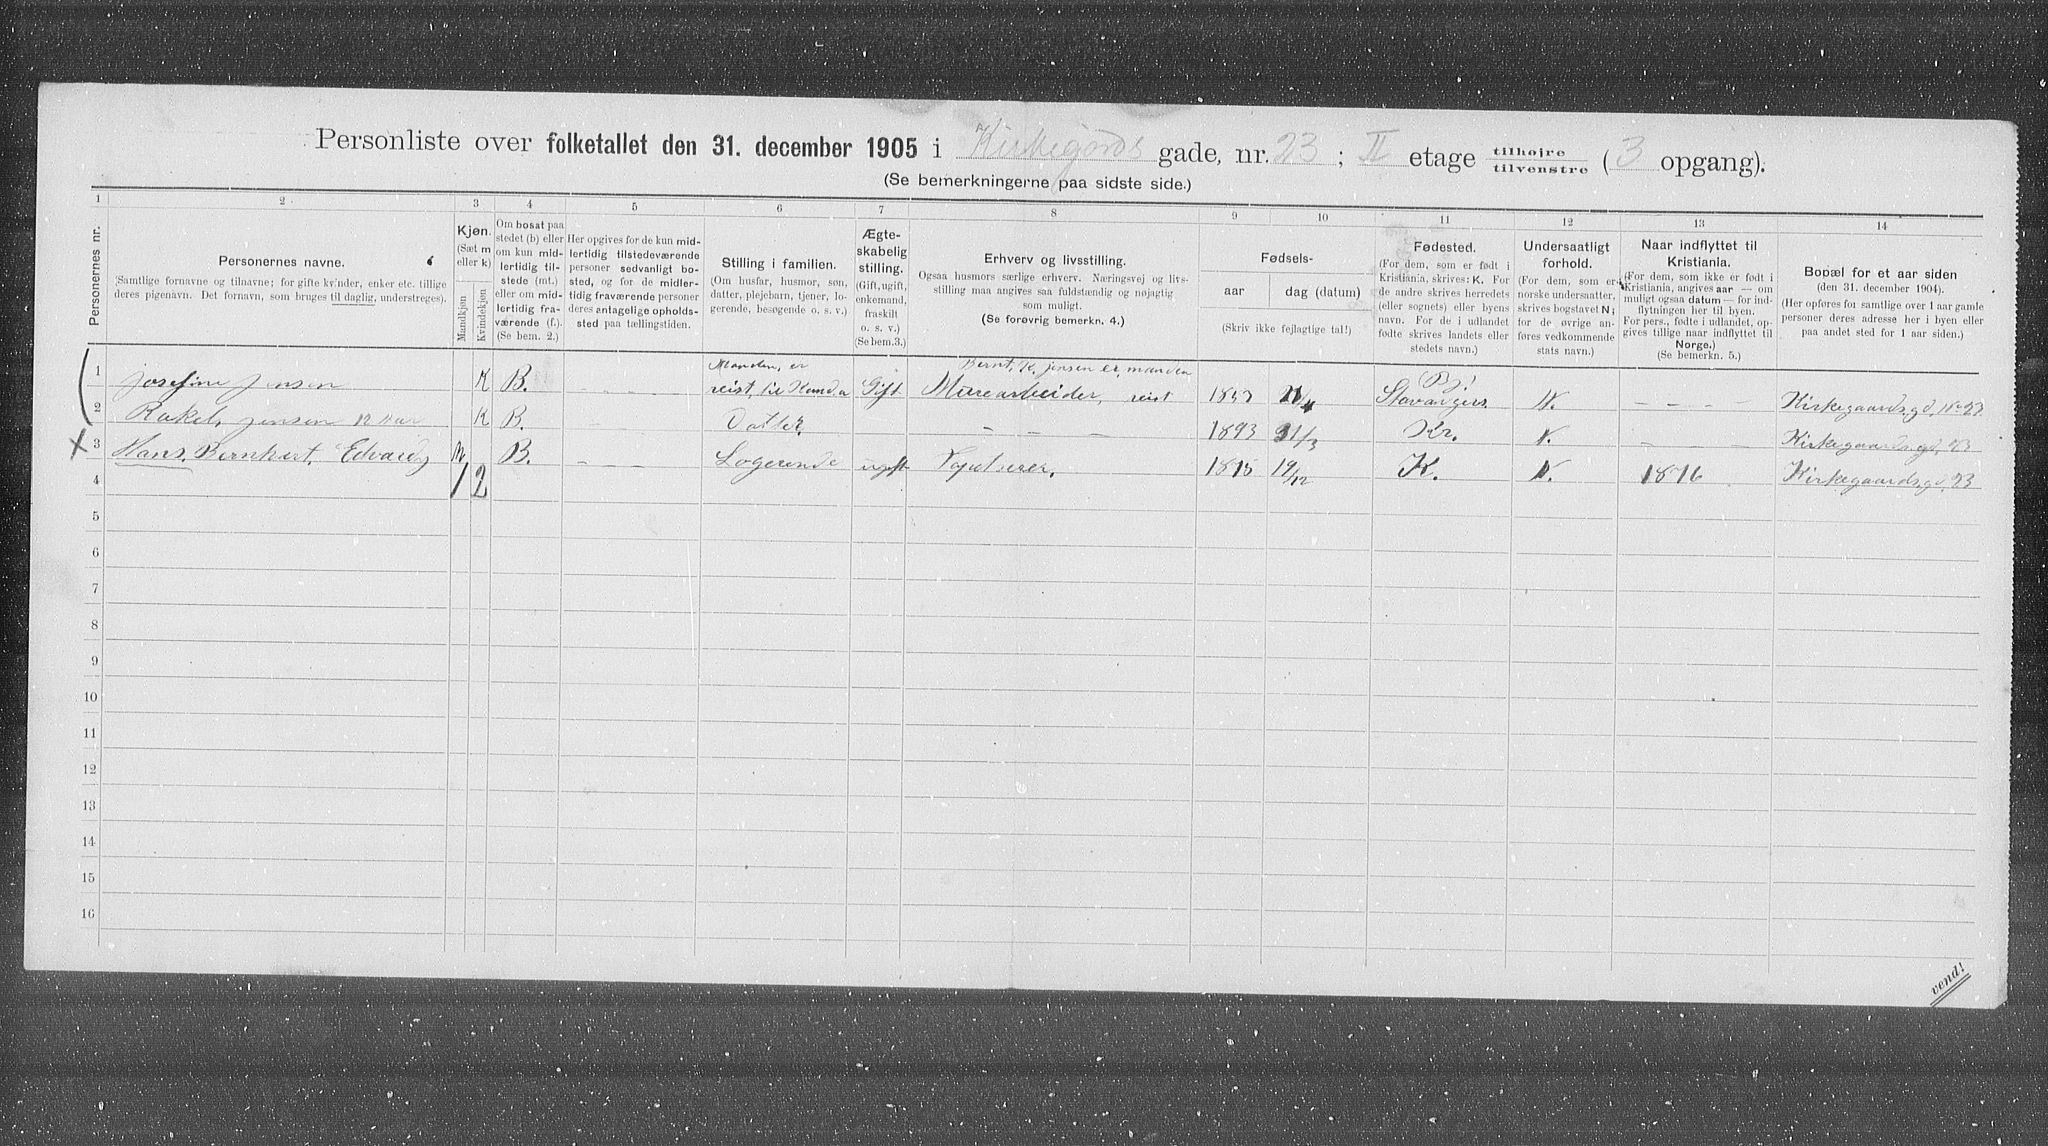 Personliste over folketallet den 31. december 1905 i Kirkegårds gade, nr. 23; II etage tilhøjre tilvenstre (3 opgang).
(Se bemerkningerne paa sidste side.)
1 2 3 4 5 6 7 8 9 10 11 12 13 14
Personernes nr.
Personernes navne.
(Samtlige fornavne og tilnavne; for gifte kvinder, enker etc. tillige
deres pigenavn. Det fornavn, som bruges til daglig, understreges).
Kjøn.
(Sæt m
eller k)
Mandkjøn
Kvindekjøn
Om bosat paa
stedet (b) eller
om kun mid-
lertidig til-
stede (mt.)
eller om mid-
lertidig fra-
værende (f.).
(Se bem. 2.)
Her opgives for de kun mid-
lertidig tilstedeværende
personer sedvanligt bo-
sted, og for de midler-
tidig fraværende personer
deres antagelige opholds-
sted paa tællingstiden.
Stilling i familien.
(Om husfar, husmor, søn,
datter, plejebarn, tjener, lo-
gerende, besøgende o. s. v.)
Ægte-
skabelig
stilling.
(Gift, ugift,
enkemand,
fraskilt
o. s. v.)
(Se bem.3.)
Erhverv og livsstilling.
Ogsaa husmors særlige erhverv. Næringsvej og livs-
stilling maa angives saa fuldstændig og nøjagtig
som muligt.
(Se forøvrig bemerkn. 4.)
Fødsels-
aar
dag (datum)
(Skriv ikke fejlagtige tal!)
Fødested.
(For dem, som er født i
Kristiania, skrives: K. For
de andre skrives herredets
(eller sognets) eller byens
navn. For de i udlandet
fødte skrives landets eller
stedets navn.)
Undersaatligt
forhold.
(For dem, som er
norske undersaatter,
skrives bogstavet N;
for de øvrige an-
føres vedkommende
stats navn.)
Naar indflyttet til
Kristiania.
(For dem, som ikke er født i
Kristiania, angives aar — om
muligt ogsaa datum — for ind-
flytningen her til byen.
For pers., fødte i udlandet, op-
gives tillige naar indflyttet til
Norge.)
(Se bemerkn. 5.)
Bopæl for et aar siden
(den 31. december 1904).
(Her opføres for samtlige over 1 aar gamle
personer deres adresse her i byen eller
paa andet sted for 1 aar siden.)
Manden, er Bernt, K, jensen er, manden (By)
1 josefine jensen K B. - - reist, til Gift Murearbeider, reist 21/4 Stavanger. N. - - - Kirkegaards,gd, No 23
2 Rakel, jensen 12 aar K B. Datter - - - - 1893 31/3 Kr. N. - - Kirkegaards,gd, 23
3 Hans, Bernhart, m B. - - - Logerende ugift 1875 19/12 K. N. 1876 Kirkegaards,gd, 23
4 1 2
5
6
7
8
9
10
11
12
13
14
15
16
vend!